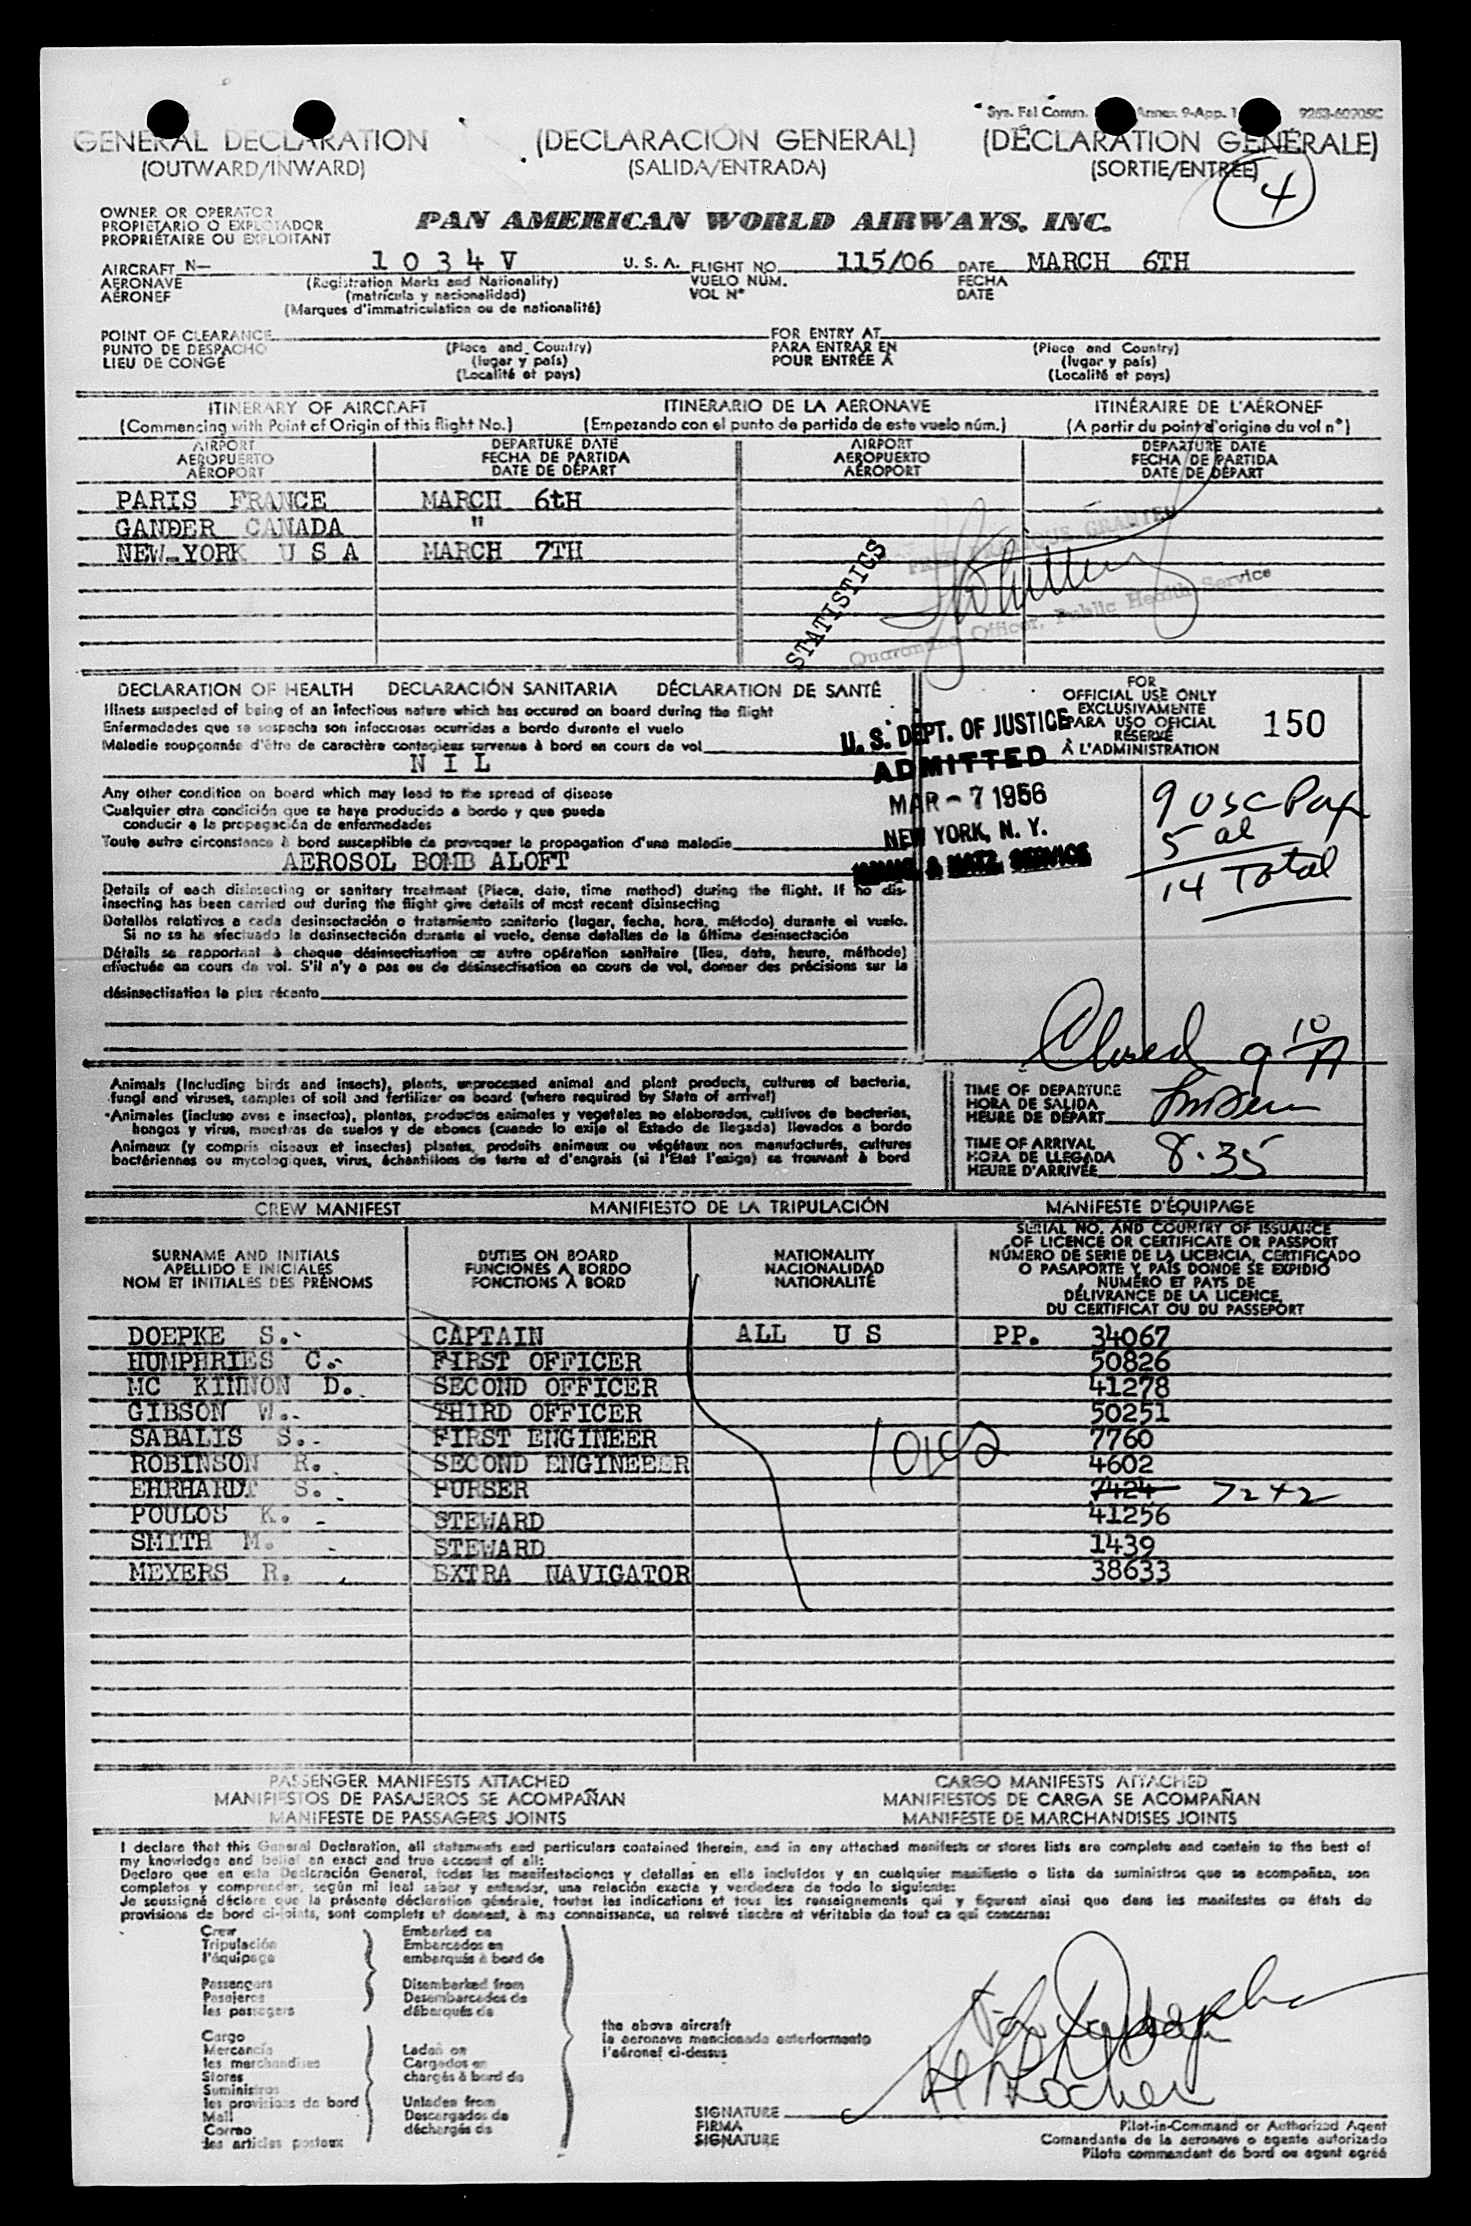 Sys. Fal Comm. Annex 9-App. 1 9263-60205C
GENERAL DECLARATION (DECLARACIÓN GENERAL) (DÉCLARATION GÉNÉRALE)
(OUTWARD/INWARD) (SALIDA/ENTRADA) (SORTIE/ENTRÉE)
4
OWNER OR OPERATOR
PROPIETARIO O EXPLOTADOR
PROPRIÉTAIRE OU EXPLOITANT
PAN AMERICAN WORLD AIRWAYS, INC.
AIRCRAFT N— 1 0 3 4 V U. S. A. FLIGHT NO. 115/06 DATE MARCH 6TH
AERONAVE (Registration Marks and Nationality) VUELO NUM. FECHA
AÉRONEF (matrícula y nacionalidad) VOL Nº DATE
(Marques d'immatriculation ou de nationalité)
POINT OF CLEARANCE FOR ENTRY AT
PUNTO DE DESPACHO (Place and Country) PARA ENTRAR EN (Place and Country)
LIEU DE CONGÉ (lugar y país) POUR ENTRÉE À (lugar y país)
(Localité et pays) (Localité et pays)
ITINERARY OF AIRCRAFT ITINERARIO DE LA AERONAVE ITINÉRAIRE DE L'AÉRONEF
(Commencing with Point of Origin of this flight No.) (Empezando con el punto de partida de este vuelo núm.) (A partir du point d'origine du vol nº)
AIRPORT DEPARTURE DATE AIRPORT DEPARTURE DATE
AEROPUERTO FECHA DE PARTIDA AEROPUERTO FECHA DE PARTIDA
AÉROPORT DATE DE DÉPART AÉROPORT DATE DE DÉPART
PARIS FRANCE MARCH 6tH
GANDER CANADA "
NEW-YORK U S A MARCH 7TH
STATISTICS
Quarantine Officer, Public Health Service
DECLARATION OF HEALTH DECLARACIÓN SANITARIA DÉCLARATION DE SANTÉ
Illness suspected of being of an infectious nature which has occured on board during the flight
Enfermedades que se sospecha son infecciosas ocurridas a bordo durante el vuelo
Maladie soupçonnée d'être de caractère contagieux survenue à bord en cours de vol
N I L
Any other condition on board which may lead to the spread of disease
Cualquier otra condición que se haya producido a bordo y que pueda
conducir a la propagación de enfermedades
Toute autre circonstance à bord susceptible de provoquer la propagation d'une maladie
AEROSOL BOMB ALOFT
Details of each disinsecting or sanitary treatment (Place, date, time method) during the flight. If no dis-
insecting has been carried out during the flight give details of most recent disinsecting
Detalles relativos a cada desinsectación o tratamiento sanitario (lugar, fecha, hora, método) durante el vuelo.
Si no se ha efectuado la desinsectación durante el vuelo, dense detalles de la última desinsectación
Détails se rapportant à chaque désinsectisation ou autre opération sanitaire (lieu, date, heure, méthode)
effectuée en cours de vol. S'il n'y a pas eu de désinsectisation en cours de vol, donner des précisions sur la
désinsectisation la plus récente
FOR
OFFICIAL USE ONLY
EXCLUSIVAMENTE
PARA USO OFICIAL
RÉSERVÉ
À L'ADMINISTRATION
150
U. S. DEPT. OF JUSTICE
ADMITTED
MAR - 7 1956
NEW YORK, N. Y.
IMMIG. & NATZ. SERVICE
9 USC Pax
5 al
14 Total
Closed 9 10 A
Animals (Including birds and insects), plants, unprocessed animal and plant products, cultures of bacteria,
fungi and viruses, samples of soil and fertilizer on board (where required by State of arrival)
Animales (incluso aves e insectos), plantas, productos animales y vegetales no elaborados, cultivos de bacterias,
hongos y virus, muestras de suelos y de abonos (cuando lo exija el Estado de llegada) llevados a bordo
Animaux (y compris oiseaux et insectes) plantes, produits animaux ou végétaux non manufacturés, cultures
bactériennes ou mycologiques, virus, échantillons de terre et d'engrais (si l'État l'exige) se trouvant à bord
TIME OF DEPARTURE
HORA DE SALIDA
HEURE DE DÉPART
TIME OF ARRIVAL
HORA DE LLEGADA
HEURE D'ARRIVÉE
8.35
CREW MANIFEST MANIFIESTO DE LA TRIPULACIÓN MANIFESTE D'ÉQUIPAGE
SURNAME AND INITIALS
APELLIDO E INICIALES
NOM ET INITIALES DES PRÉNOMS
DUTIES ON BOARD
FUNCIONES A BORDO
FONCTIONS À BORD
NATIONALITY
NACIONALIDAD
NATIONALITÉ
SERIAL NO. AND COUNTRY OF ISSUANCE
OF LICENCE OR CERTIFICATE OR PASSPORT
NÚMERO DE SERIE DE LA LICENCIA, CERTIFICADO
O PASAPORTE Y PAÍS DONDE SE EXPIDIÓ
NUMÉRO ET PAYS DE
DÉLIVRANCE DE LA LICENCE,
DU CERTIFICAT OU DU PASSEPORT
DOEPKE S. CAPTAIN ALL U S PP. 34067
HUMPHRIES C. FIRST OFFICER 50826
MC KINNON D. SECOND OFFICER 41278
GIBSON W. THIRD OFFICER 50251
SABALIS S. FIRST ENGINEER 7760
ROBINSON R. SECOND ENGINEEER 4602
EHRHARDT S. PURSER 7424 7242
POULOS K. STEWARD 41256
SMITH M. STEWARD 1439
MEYERS R. EXTRA NAVIGATOR 38633
PASSENGER MANIFESTS ATTACHED CARGO MANIFESTS ATTACHED
MANIFIESTOS DE PASAJEROS SE ACOMPAÑAN MANIFIESTOS DE CARGA SE ACOMPAÑAN
MANIFESTE DE PASSAGERS JOINTS MANIFESTE DE MARCHANDISES JOINTS
I declare that this General Declaration, all statements and particulars contained therein, and in any attached manifests or stores lists are complete and contain to the best of
my knowledge and belief an exact and true account of all:
Declaro que en esta Declaración General, todas las manifestaciones y detalles en ella incluidos y en cualquier manifiesto o lista de suministros que se acompañan, son
completos y comprenden, según mi leal saber y entender, una relación exacta y verdadera de todo lo siguiente:
Je soussigné déclare que la présente déclaration générale, toutes les indications et tous les renseignements qui y figurent ainsi que dans les manifestes ou états de
provisions de bord ci-joints, sont complets et donnent, à ma connaissance, un relevé sincère et véritable de tout ce qui concerne:
Crew
Tripulación
l'équipage
Passengers
Pasajeros
les passagers
Cargo
Mercancía
les marchandises
Stores
Suministros
les provisions de bord
Mail
Correo
les articles postaux
Embarked on
Embarcados en
embarqués à bord de
Disembarked from
Desembarcados de
débarqués de
Laden on
Cargados en
chargés à bord de
Unladen from
Descargados de
déchargés de
the above aircraft
la aeronave mencionada anteriormente
l'aéronef ci-dessus
SIGNATURE
FIRMA
SIGNATURE
Pilot-in-Command or Authorized Agent
Comandante de la aeronave o agente autorizado
Pilote commandant de bord ou agent agréé